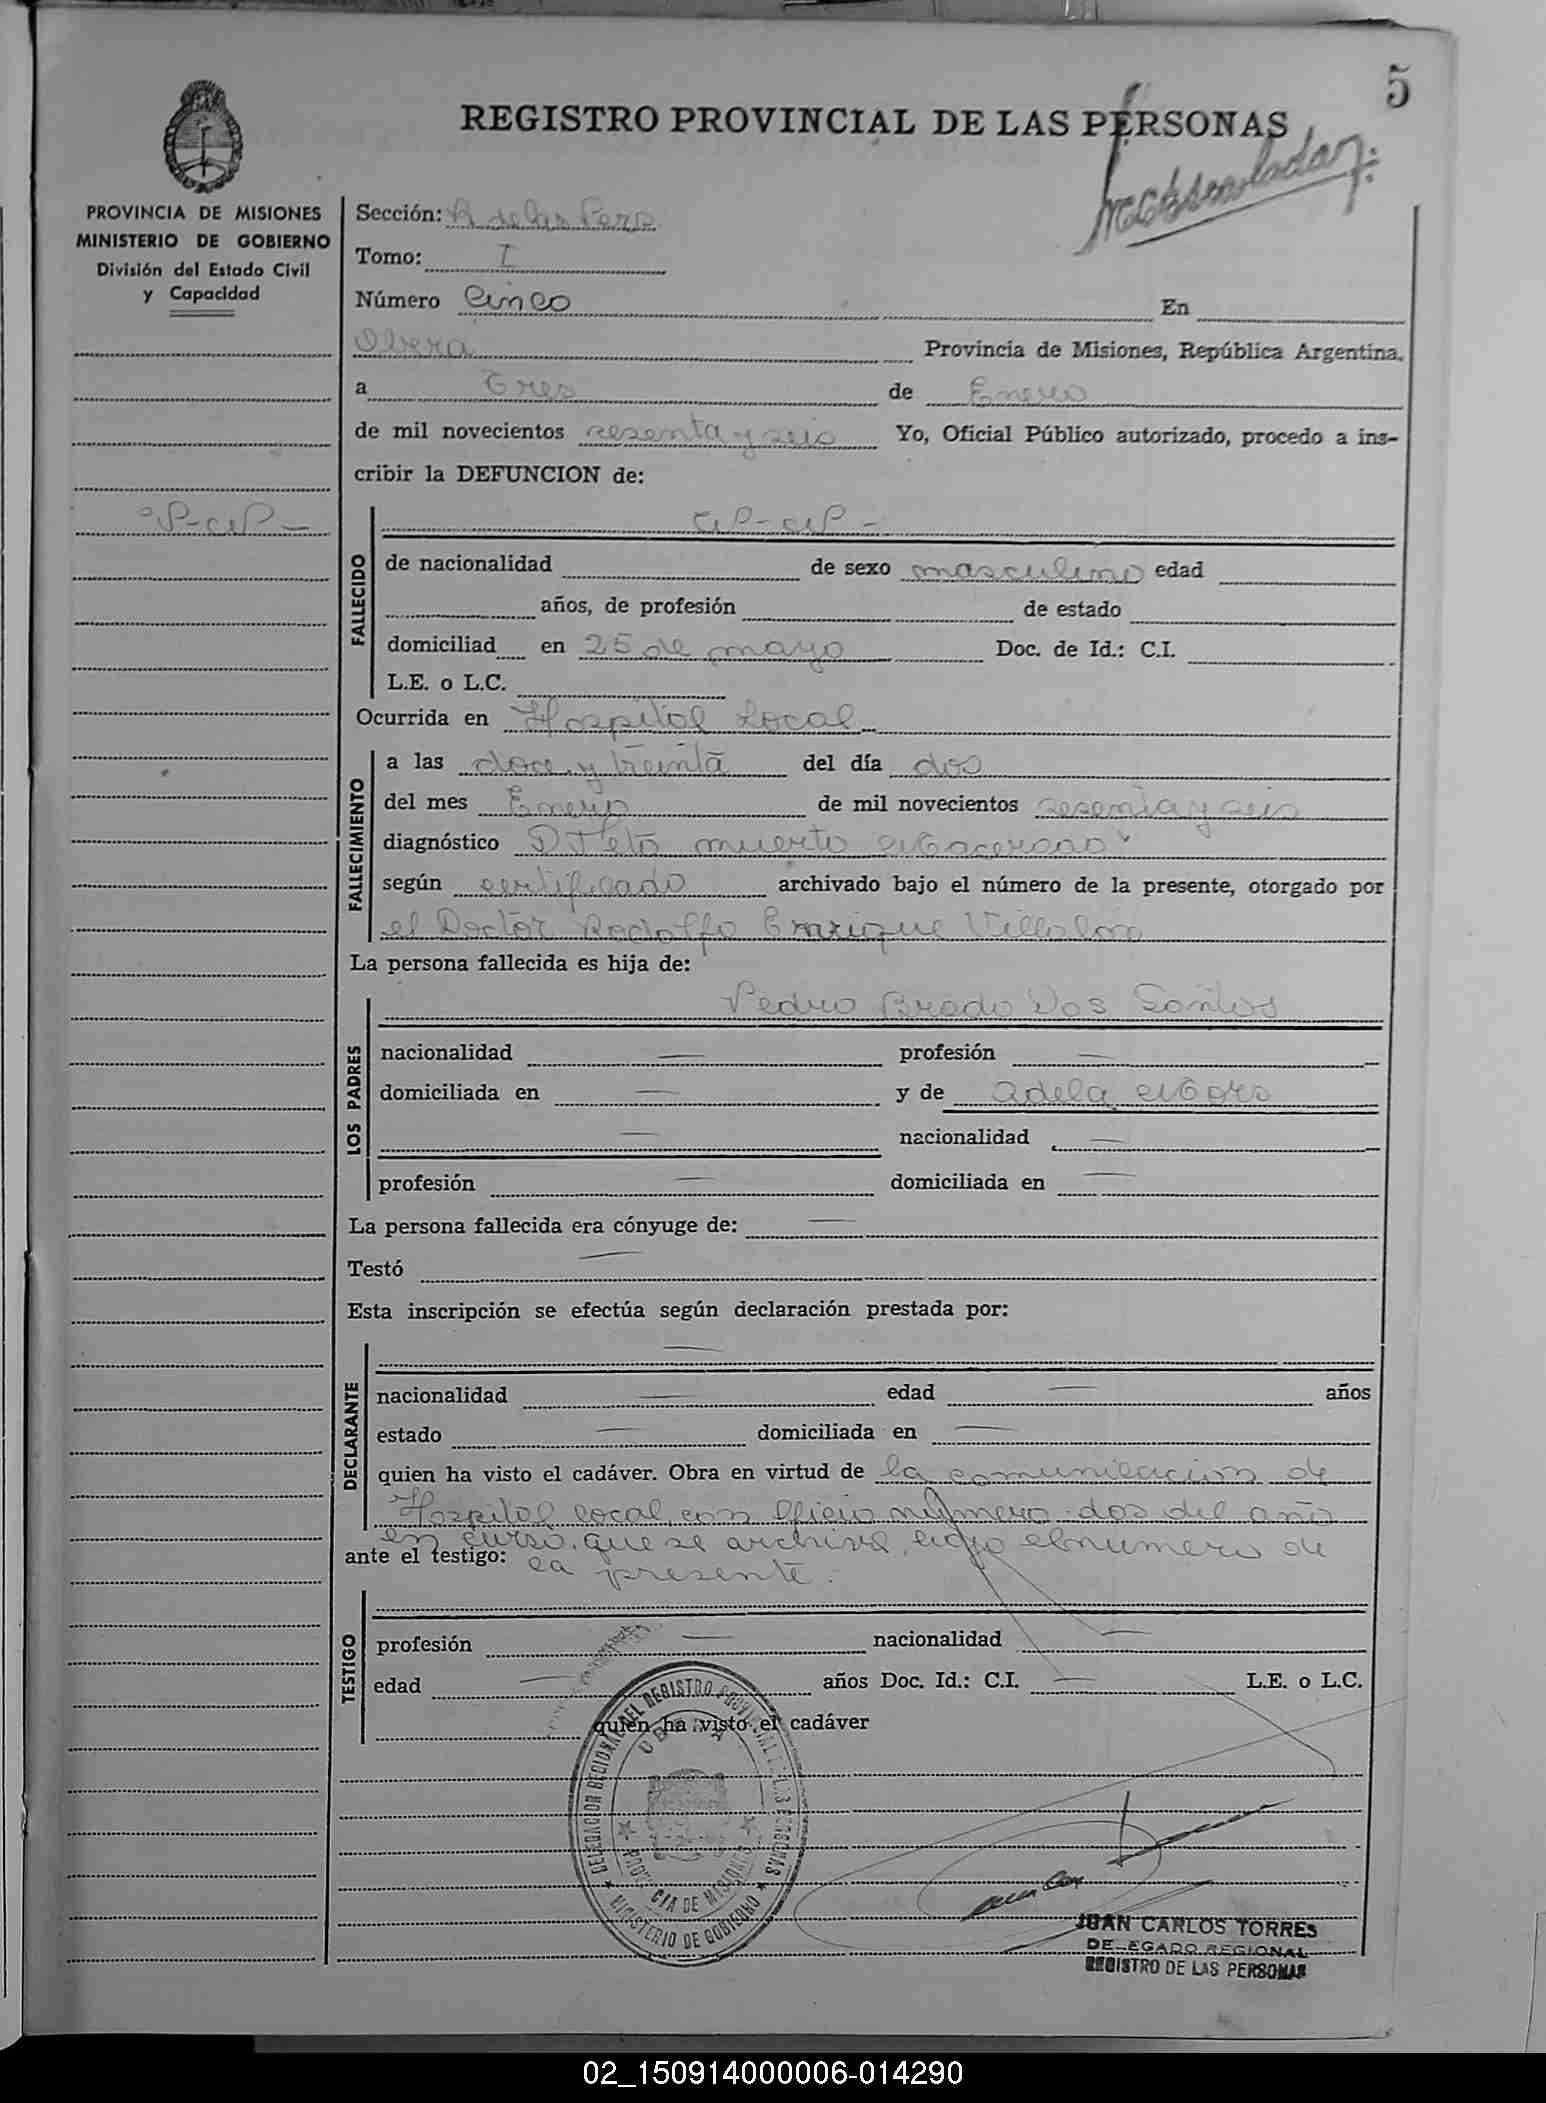 5
REGISTRO PROVINCIAL DE LAS PERSONAS
PROVINCIA DE MISIONES
MINISTERIO DE GOBIERNO
División del Estado Civil
y Capacidad
Sección: R de las Pers.
Tomo: I
Número Cinco En
Obera Provincia de Misiones, República Argentina.
a Tres de Enero
de mil novecientos sesenta y seis Yo, Oficial Público autorizado, procedo a ins-
cribir la DEFUNCION de:
FALLECIDO
de nacionalidad de sexo masculino edad
años, de profesión de estado
domiciliad en 25 de mayo Doc. de Id.: C.I.
L.E. o L.C.
Ocurrida en Hospital Local
FALLECIMIENTO
a las doce y treinta del día dos
del mes Enero de mil novecientos sesenta y seis
diagnóstico muerto
según certificado archivado bajo el número de la presente, otorgado por
el Doctor Rodolfo Enrique Villalba
La persona fallecida es hija de:
LOS PADRES
Pedro Dos Santos
nacionalidad — profesión —
domiciliada en — y de Adela
— nacionalidad —
profesión — domiciliada en —
La persona fallecida era cónyuge de: —
Testó —
Esta inscripción se efectúa según declaración prestada por:
DECLARANTE
—
nacionalidad — edad — años
estado — domiciliada en —
quien ha visto el cadáver. Obra en virtud de la comunicacion de
Hospital local, con oficio numero dos del año
en curso, que se archiva bajo el numero de
ante el testigo: la presente.
TESTIGO
profesión — nacionalidad —
edad — años Doc. Id.: C.I. — L.E. o L.C.
quien ha visto el cadáver
DELEGACION REGIONAL DEL REGISTRO PROVINCIAL DE LAS PERSONAS
OBERA
PROVINCIA DE MISIONES
MINISTERIO DE GOBIERNO
JUAN CARLOS TORRES
DELEGADO REGIONAL
REGISTRO DE LAS PERSONAS
02_150914000006-014290